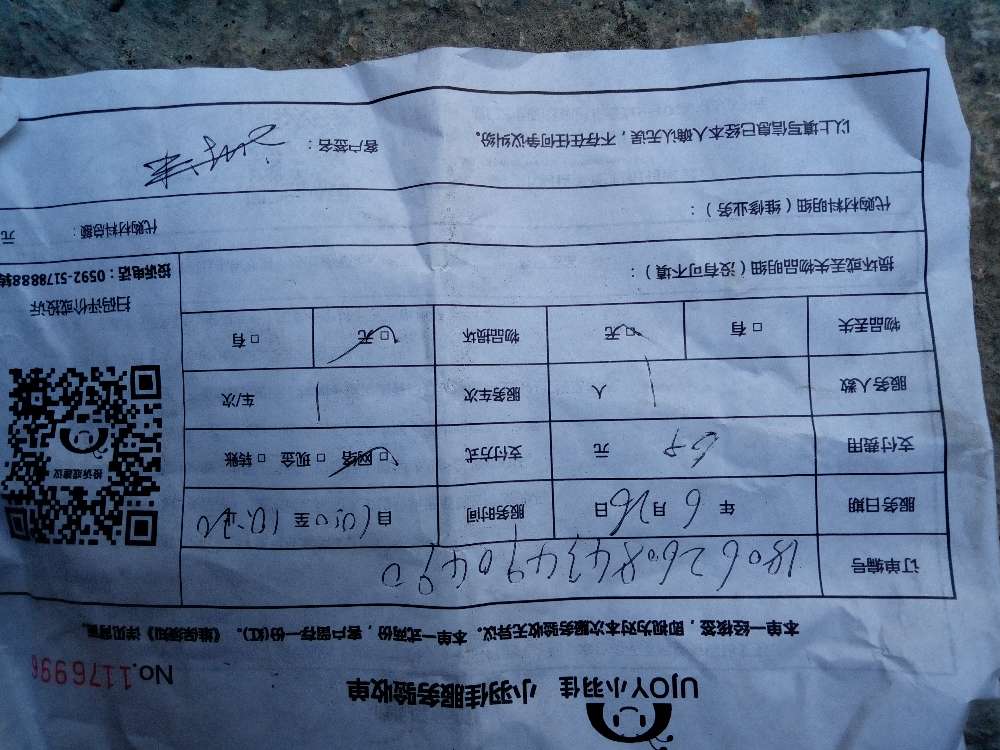 UJOY小羽佳 小羽佳服务验收单
No.1176996
本单一经核签，即视为对本次服务验收无异议。本单一式两份，客户留存一份(红)。《维保须知》详见背面。
订单编号
服务日期 年 6 月 26 日 服务时间 自 10:10 至
支付费用 元 支付方式 □网络 □现金 □转账
服务人数 1 人 服务车次 1 车/次
物品丢失 □有 □无 物品损坏 □无 □有
损坏或丢失物品明细（没有可不填）：
投诉或建议
扫码评价或投诉
投诉电话：0592-5178888转
代购材料明细（维修业务）：
代购材料总额： 元
以上填写信息已经本人确认无误，不存在任何争议纠纷。 客户签名：